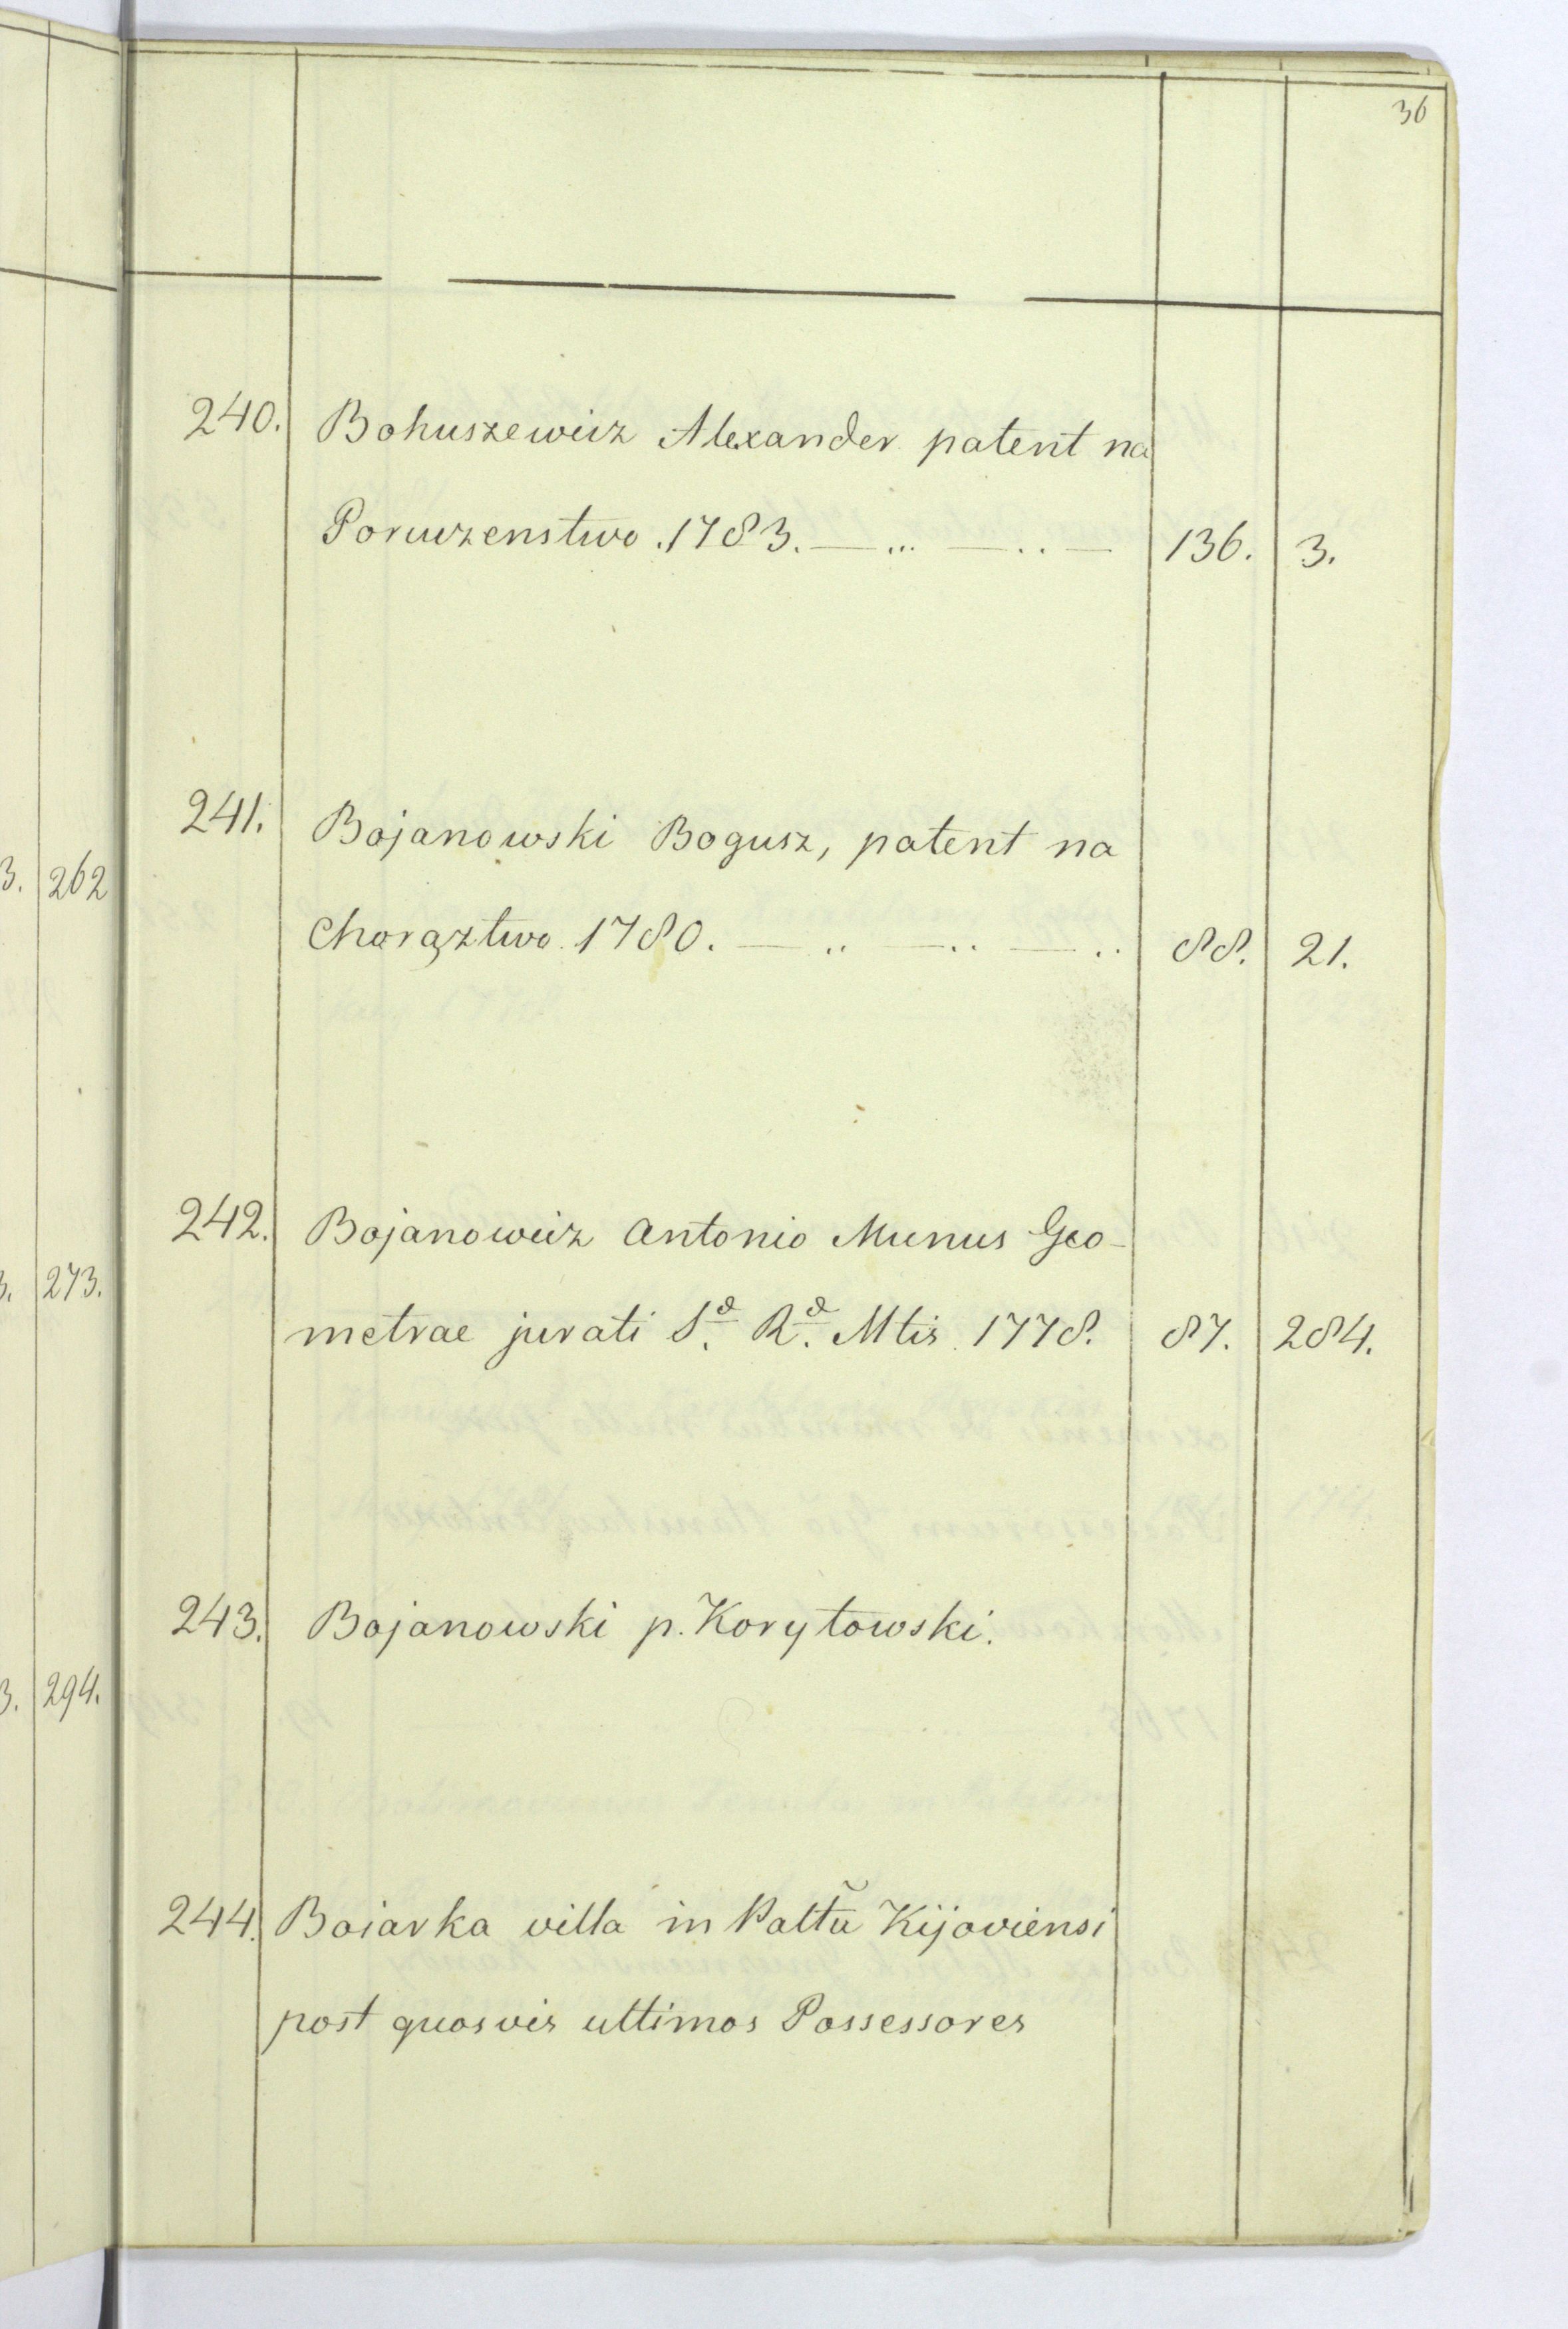 36
240. Bohuszewicz Alexander patent na
Poruczenstwo. 1783. — ... — .. — 136. 3.
241. Bojanowski Bogusz, patent na
Chorąztwo. 1780. — .. — .. — .. 88. 21.
3. 262
242. Bojanowicz Antonio Munus Geo-
metrae jurati S.ae R.ae Mtis. 1778. 87. 284.
3. 273.
243. Bojanowski p. Korytowski.
3. 294.
244. Boiarka villa in Paltũ Kijoviensi
post quosvis ultimos Possessores